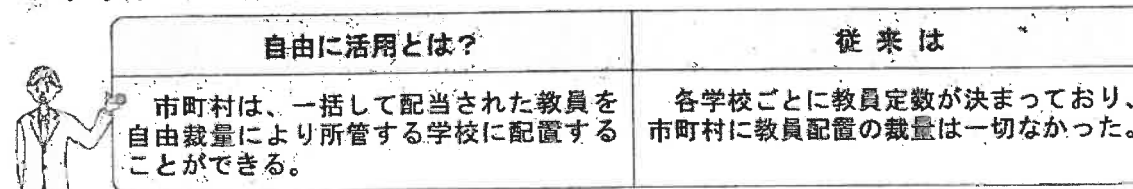 自由に活用とは？
従来は
市町村は、一括して配当された教員を
自由裁量により所管する学校に配置する
ことができる。
各学校ごとに教員定数が決まっており、
市町村に教員配置の裁量は一切なかった。